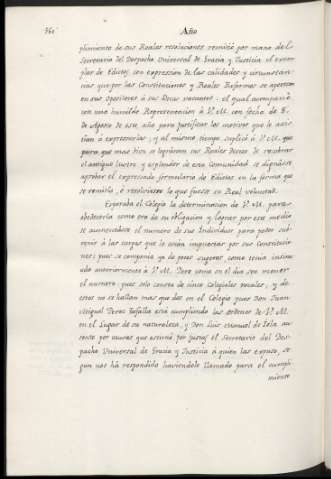 Año
plimiento de sus Reales resoluciones remitió por mano del
Secretario del Despacho Universal de Gracia y Justicia el exem
plar de Edictos con expresion de las calidades y circunstan
cias que por las Constituciones y Reales Reformas se aperecen
en sus Opositores à sus Becas vacantes: el qual acompañó
con una humilde Representacion à V.M. con fecha de
de Agosto de este año para justificar los motivos que le asis
tian à expresarlas; y al mismo tiempo suplicó à V.M. que
para que mas bien se lograsen sus Reales Deseos de
el antiguo lustre y esplendor de esta Comunidad se dignase
aprobar el expresado formulario de Edictos en la forma que
se remitia, ó resolviese lo que fuese su Real voluntad.
Esperaba el Colegio la determinacion de V.M. para
obedecerla como era de su obligacion y lograr por este medio
se aumentase el numero de sus Individuos para poder sub
venir à las cargas que le estan impuestas por sus Constitucio
nes; pues se componia ya de pocos sugetos como tenia insinu
ado anteriormente à V.M. Pero como en el dia sea menor
el numero, pues solo consta de cinco Colegiales totales, y de
estos no se hallan mas que dos en el Colegio pues Don Juan
Miguel Perez Tafalla está cumpliendo las ordenes de V.M.
en el Lugar de su naturaleza, y Don Luis Manuel de Isla au
sente por causas que estimó por justas el Secretario del Des
pacho Universal de Gracia y Justicia à quien las expuso, se
gun nos ha respondido haviendole llamado para el cumpli
miento